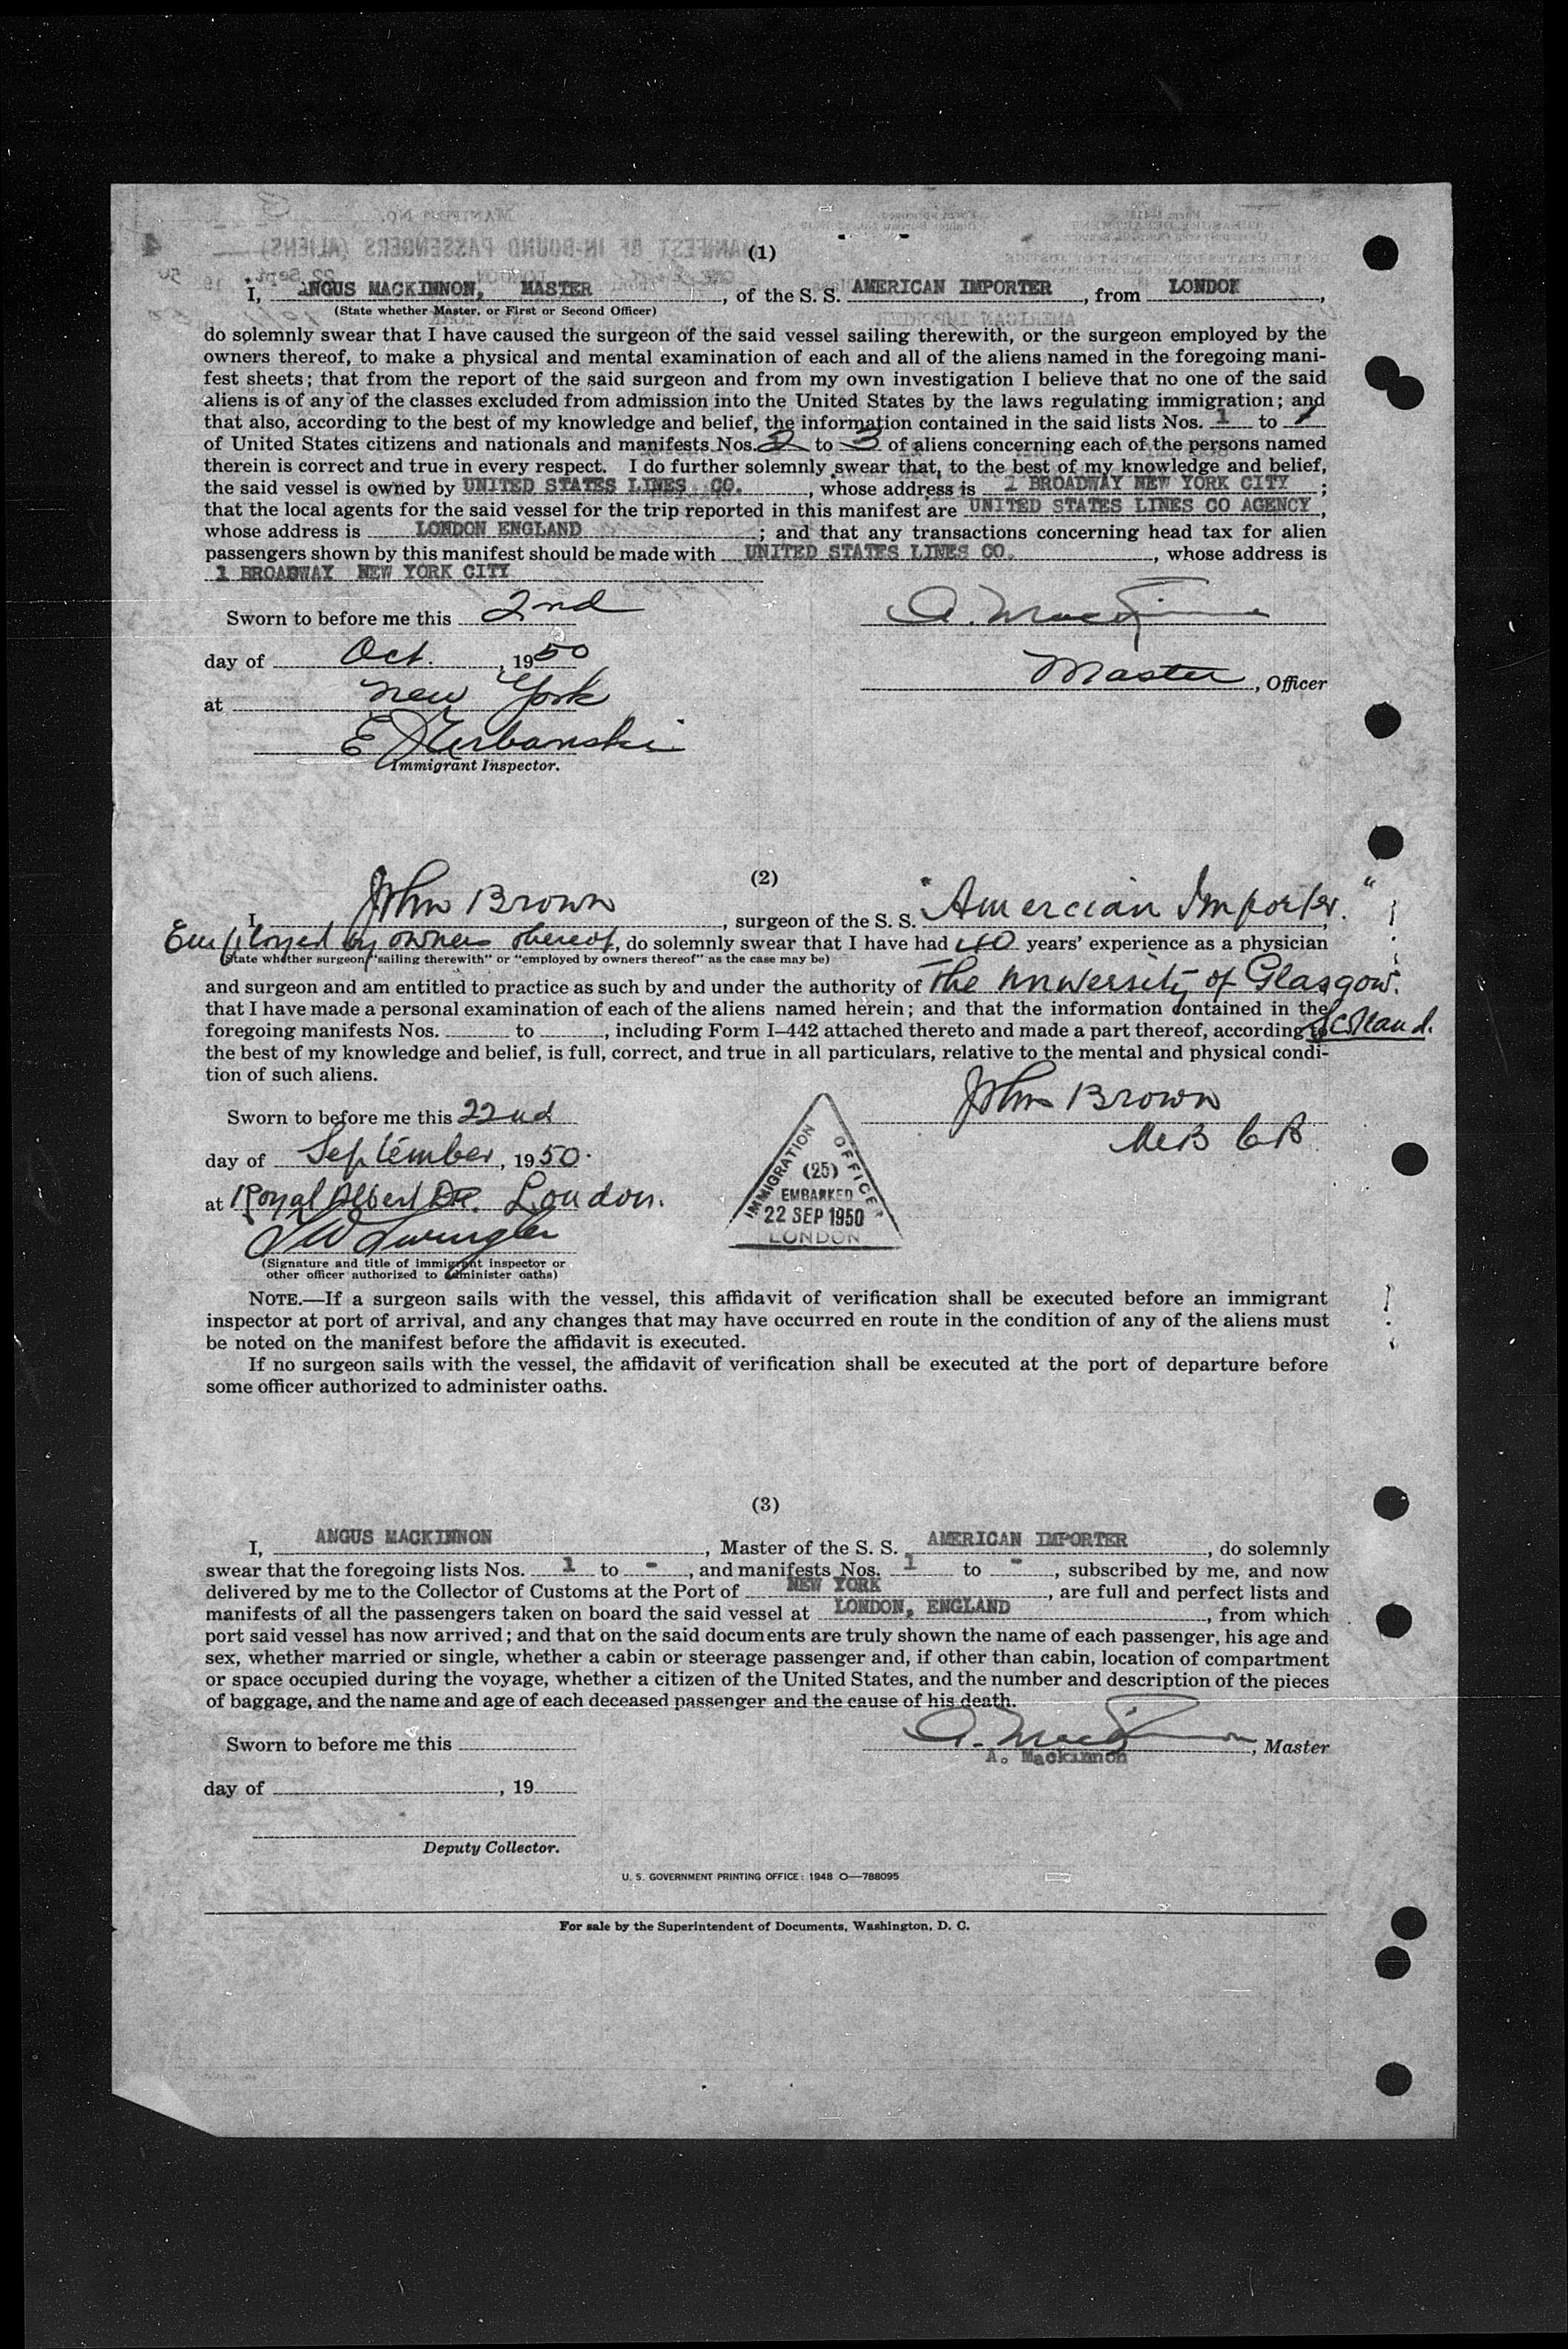 (1)
I, ANGUS MACKINNON, MASTER, of the S. S. AMERICAN IMPORTER, from LONDON,
(State whether Master, or First or Second Officer)
do solemnly swear that I have caused the surgeon of the said vessel sailing therewith, or the surgeon employed by the
owners thereof, to make a physical and mental examination of each and all of the aliens named in the foregoing mani-
fest sheets; that from the report of the said surgeon and from my own investigation I believe that no one of the said
aliens is of any of the classes excluded from admission into the United States by the laws regulating immigration; and
that also, according to the best of my knowledge and belief, the information contained in the said lists Nos. 1 to 1
of United States citizens and nationals and manifests Nos. 2 to 3 of aliens concerning each of the persons named
therein is correct and true in every respect. I do further solemnly swear that, to the best of my knowledge and belief,
the said vessel is owned by UNITED STATES LINES CO., whose address is 1 BROADWAY NEW YORK CITY;
that the local agents for the said vessel for the trip reported in this manifest are UNITED STATES LINES CO AGENCY,
whose address is LONDON ENGLAND; and that any transactions concerning head tax for alien
passengers shown by this manifest should be made with UNITED STATES LINES CO., whose address is
1 BROADWAY NEW YORK CITY
Sworn to before me this 2nd
A. MacKinnon
day of Oct., 1950
Master, Officer
at New York
E J Urbanski
Immigrant Inspector.
(2)
I, John Brown, surgeon of the S. S. "Amercian Importer."
Employed by owners thereof, do solemnly swear that I have had 40 years' experience as a physician
(State whether surgeon "sailing therewith" or "employed by owners thereof" as the case may be)
and surgeon and am entitled to practice as such by and under the authority of The University of Glasgow.
that I have made a personal examination of each of the aliens named herein; and that the information contained in the
foregoing manifests Nos. to , including Form I-442 attached thereto and made a part thereof, according to Scotland.
the best of my knowledge and belief, is full, correct, and true in all particulars, relative to the mental and physical condi-
tion of such aliens.
John Brown
Sworn to before me this 22nd
M.B Ch B
day of September, 1950.
at Royal Albert Dk. London.
IMMIGRATION OFFICE
(25)
EMBARKED
22 SEP 1950
LONDON
(Signature and title of immigrant inspector or
other officer authorized to administer oaths)
NOTE.—If a surgeon sails with the vessel, this affidavit of verification shall be executed before an immigrant
inspector at port of arrival, and any changes that may have occurred en route in the condition of any of the aliens must
be noted on the manifest before the affidavit is executed.
If no surgeon sails with the vessel, the affidavit of verification shall be executed at the port of departure before
some officer authorized to administer oaths.
(3)
I, ANGUS MACKINNON, Master of the S. S. AMERICAN IMPORTER, do solemnly
swear that the foregoing lists Nos. 1 to -, and manifests Nos. 1 to -, subscribed by me, and now
delivered by me to the Collector of Customs at the Port of NEW YORK, are full and perfect lists and
manifests of all the passengers taken on board the said vessel at LONDON, ENGLAND, from which
port said vessel has now arrived; and that on the said documents are truly shown the name of each passenger, his age and
sex, whether married or single, whether a cabin or steerage passenger and, if other than cabin, location of compartment
or space occupied during the voyage, whether a citizen of the United States, and the number and description of the pieces
of baggage, and the name and age of each deceased passenger and the cause of his death.
Sworn to before me this
A. MacKinnon, Master
A. Mackinnon
day of , 19
Deputy Collector.
U. S. GOVERNMENT PRINTING OFFICE: 1948 O—788095
For sale by the Superintendent of Documents, Washington, D. C.